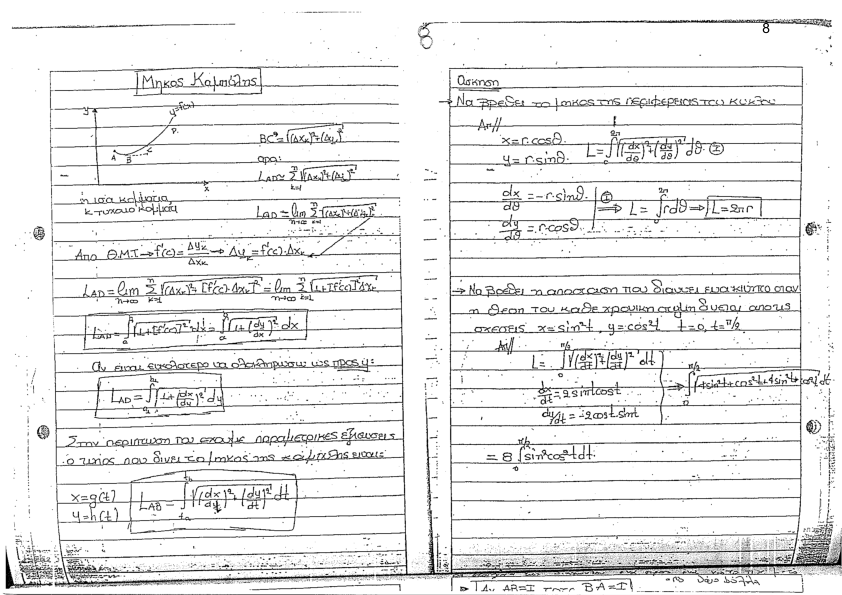 8
8
Μηκος Καμπύλης
y
y=f(x)
A
B
C
D
x
BC = √(Δx_k)²+(Δy_k)²
αρα:
L_AD ≃ Σ_{k=1}^{n} √(Δx_k)²+(Δy_k)²
n ισα κομματια,
k-τυχαιο κομματι
L_AD = lim_{n→∞} Σ_{k=1}^{n} √(Δx_k)²+(Δy_k)²
Απο Θ.Μ.Τ → f'(c) = Δy_k/Δx_k → Δy_k = f'(c)·Δx_k
L_AD = lim_{n→∞} Σ_{k=1}^{n} √(Δx_k)²+[f'(c)·Δx_k]² = lim_{n→∞} Σ_{k=1}^{n} √1+[f'(c)]² Δx_k
L_AD = ∫_a^b √1+[f'(c)]² dx = ∫_a^b √1+(dy/dx)² dx
Αν ειναι ευκολοτερο να ολοκληρωσω ως προς y:
L_AD = ∫ √1+(dx/dy)² dy
Στην περιπτωση που εχουμε παραμετρικες εξισωσεις
ο τυπος που δινει το μηκος της καμπυλης ειναι:
x=g(t)
y=h(t)
L_AB = ∫_{ta}^{tb} √(dx/dt)²+(dy/dt)² dt
Ασκηση
→ Να βρεθει το μηκος της περιφερειας του κυκλου
Απ//
x=r·cosθ.
y=r·sinθ.
L=∫_0^{2π} √(dx/dθ)²+(dy/dθ)² dθ. Ⓘ
dx/dθ = -r·sinθ.
dy/dθ = r·cosθ.
Ⓘ ⟹ L = ∫_0^{2π} r dθ ⟹ L=2πr
→ Να βρεθει η αποσταση που διανυει ενα κινητο οταν
η θεση του καθε χρονικη στιγμη δινεται απο τις
σχεσεις x=sin²t, y=cos²t t=0, t=π/2
Απ//
L = ∫_0^{π/2} √(dx/dt)²+(dy/dt)² dt
dx/dt = 2sintcost
dy/dt = -2cost·sint
⟹ ∫_0^{π/2} √4sin²t+cos²t+4sin²t+cos²t dt
= 8 ∫_0^{π/2} sin²cos²t dt.
Αν AB=I τοτε BA=I